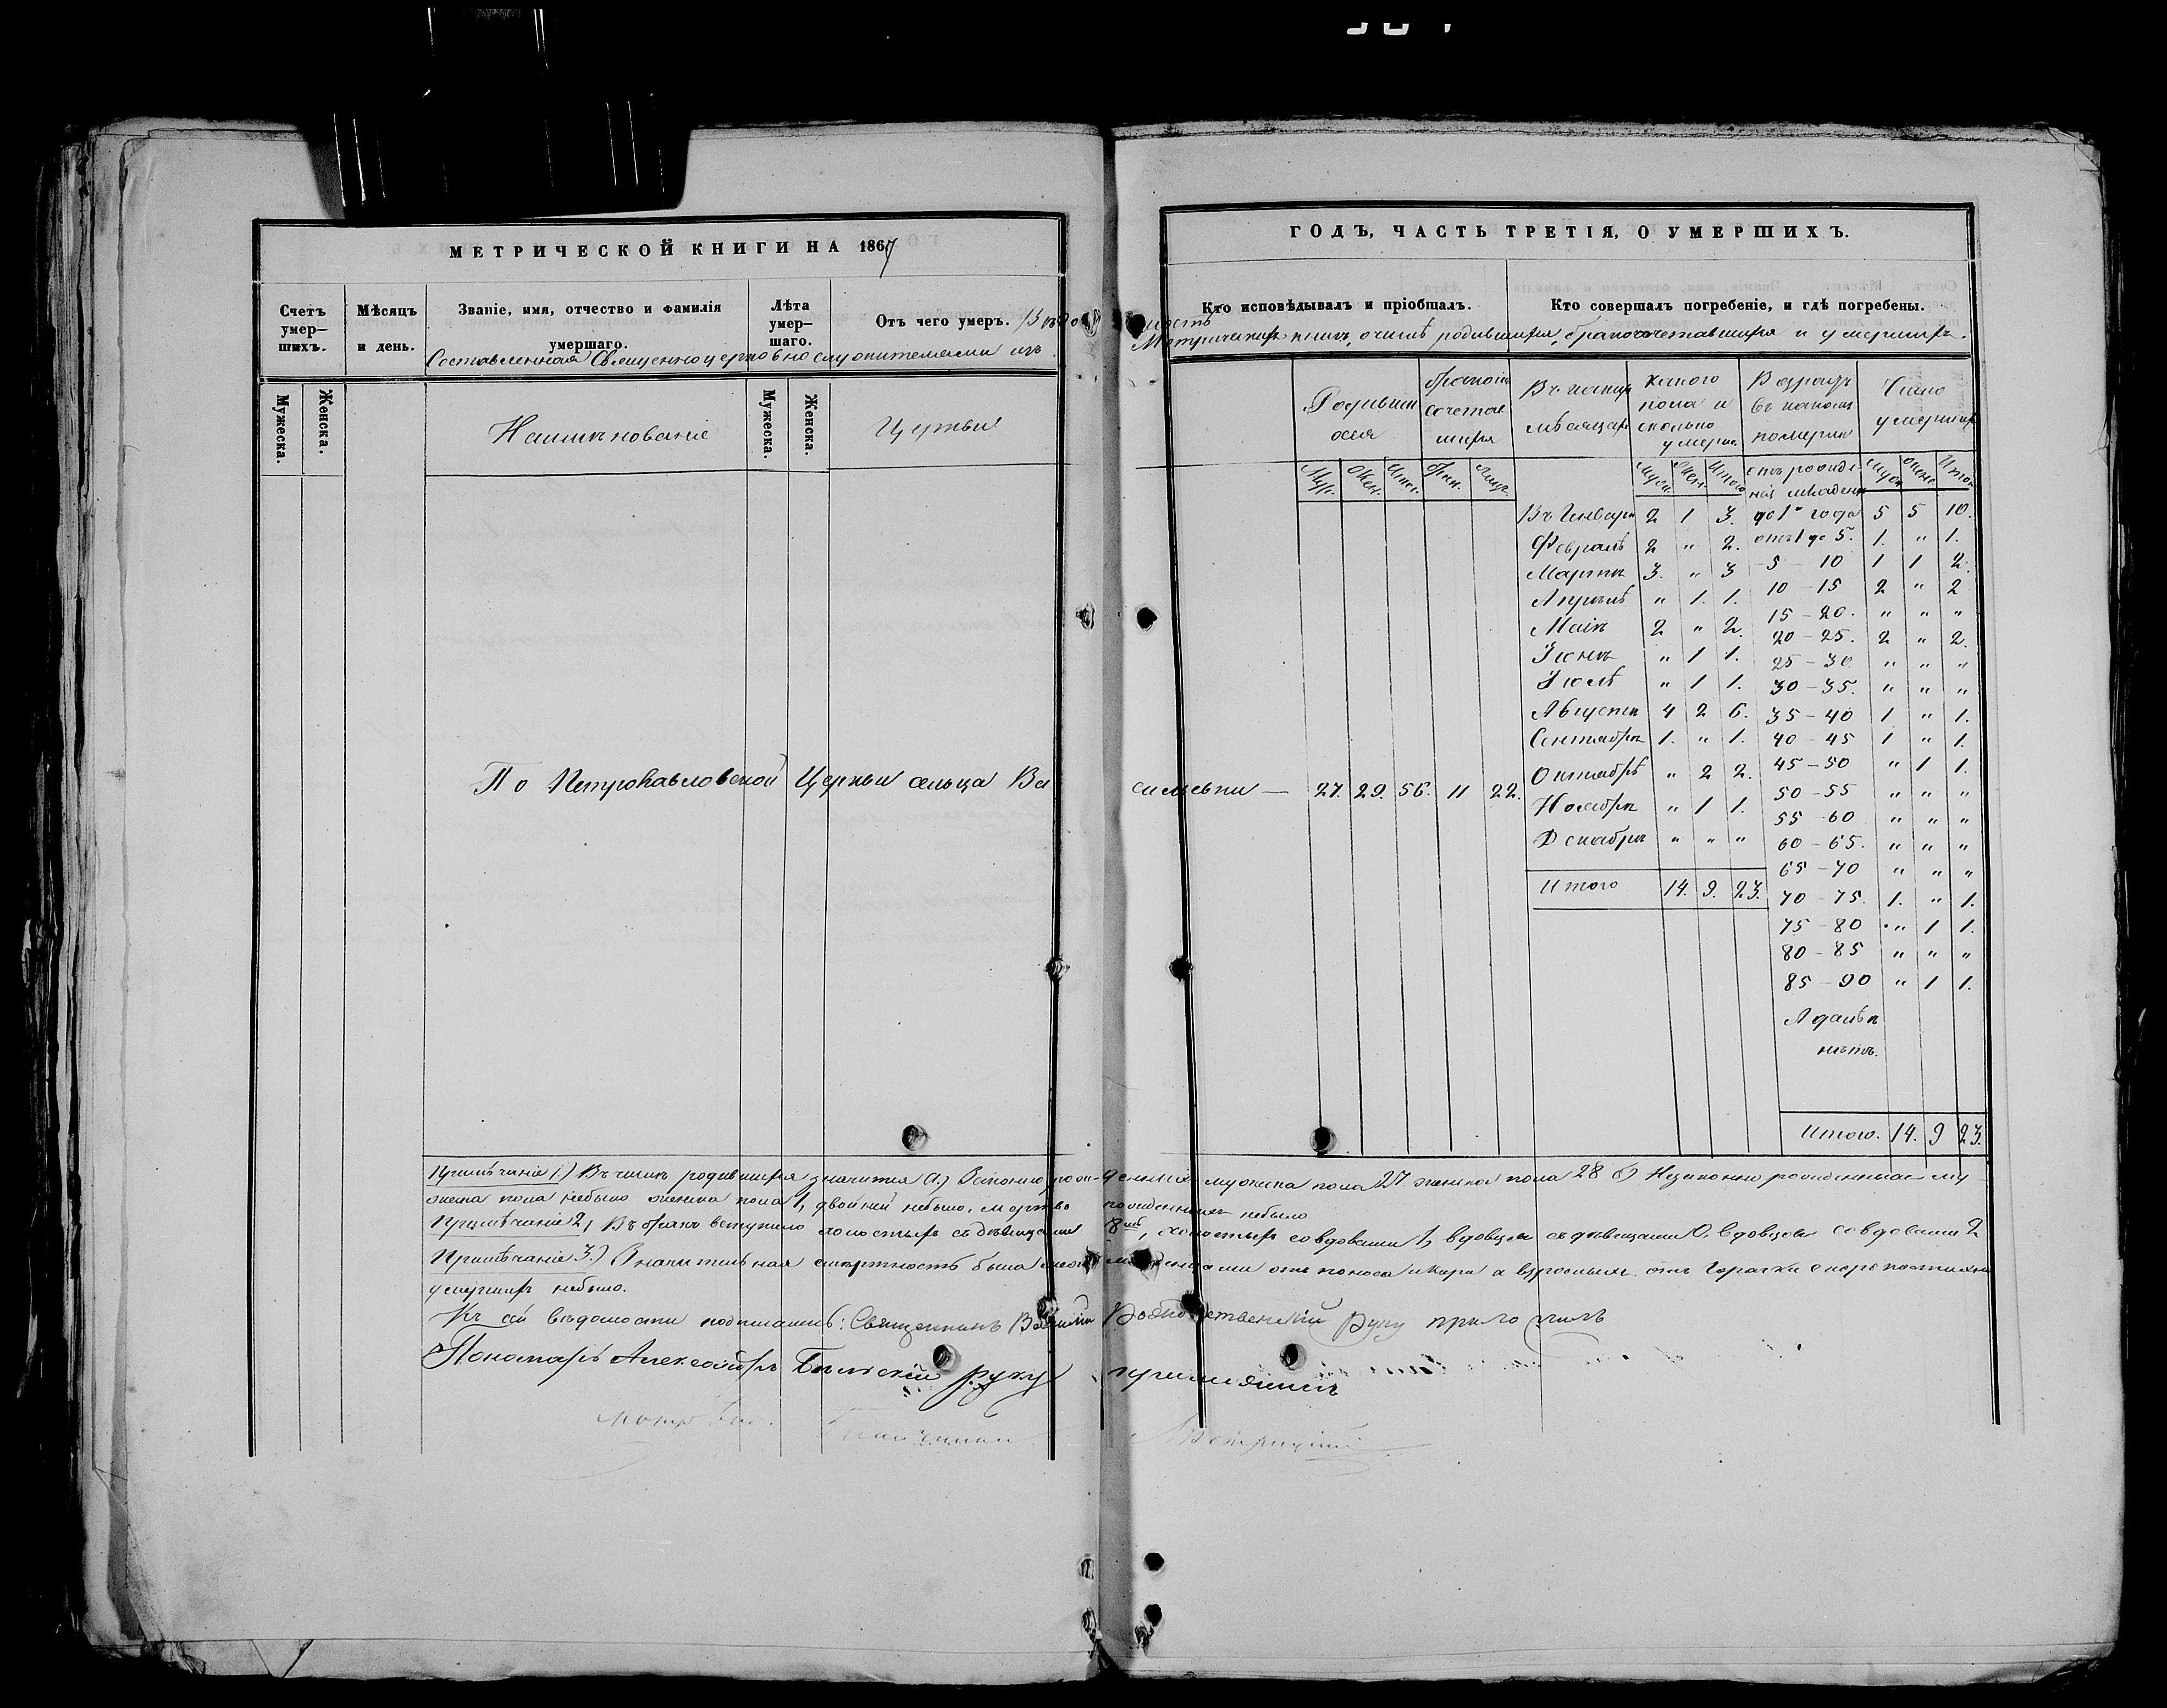 МЕТРИЧЕСКОЙ КНИГИ НА 1867
ГОДЪ, ЧАСТЬ ТРЕТІЯ, О УМЕРШИХЪ.
Счетъ умер-шихъ.
Мѣсяцъ и день.
Званіе, имя, отчество и фамилія умершаго.
Лѣта умер-шаго.
Отъ чего умеръ.
Кто исповѣдывалъ и пріобщалъ.
Кто совершалъ погребеніе, и гдѣ погребены.
Вѣдомость
Составленная Священноцерковнослужителями изъ Метрическихъ книгъ, о числѣ родившихся, бракосочетавшихся и умершихъ.
Мужеска. Женска.
Наименованіе
Мужеска. Женска.
Церкви
Родивши
хся
Бракомъ
сочетав
шихся
Въ какихъ
мѣсяцахъ
какого
пола и
сколько
умерло
Возрастъ
въ какомъ
померли
Число
умершихъ
Муж. Жен. Итог.
Муж. Жен. Итого
отъ рожде
нія младен
Муж. Жен. Итог
Въ Генварѣ 2 1 3. до 1го года 5 5 10.
Февралѣ 2 " 2. отъ 1 до 5. 1. " 1.
Мартѣ 3. " 3 5 - 10 1 1 2.
Апрѣлѣ " 1. 1. 10 - 15 2 " 2
Маѣ 2 " 2. 15 - 20. " " "
20 - 25. 2 " 2.
Іюнѣ " 1 1. 25 - 30. " " "
Іюлѣ " 1 1. 30 - 35. " " "
Августѣ 4 2 6. 35 - 40 1 " 1.
Сентябрѣ 1. " 1. 40 - 45 1 " 1.
Октябрѣ " 2 2. 45 - 50 " 1 1.
По Петропавловской Церкви сельца Ва
сильевки — 27. 29. 56. 11 22.
Ноябрѣ " 1 1. 50 - 55 " " "
55 - 60 " " "
Декабрѣ " " " 60 - 65. " " "
65 - 70 " " "
Итого 14. 9. 23. 70 - 75. 1. " 1.
75 - 80 " 1 1.
80 - 85 " " "
85 - 90 " 1 1.
А далѣе
нѣтъ.
Итого. 14. 9 23.
Примѣчаніе 1.) Въ числѣ родившихся значится а.) Законно рож-денныхъ мужеска пола 27 женска пола 28 б) Незаконно рожденные му
жеска пола небыло женска пола 1, двойней небыло, мертво рожденныхъ небыло
Примѣчаніе 2, Въ бракъ вступило холостыхъ съ дѣвицами 8мь, холостыхъ со вдовами 1, вдовцевъ съ дѣвицами 0. вдовцевъ со вдовами 2
Примѣчаніе 3.) Значительная смертность была между младенцами отъ поноса и кори а взрослыхъ отъ Горячки скоропостижно
умершихъ небыло.
Къ сей вѣдомости подписались: Священникъ Рождественскій руку приложилъ
Пономарь Александръ руку приложилъ